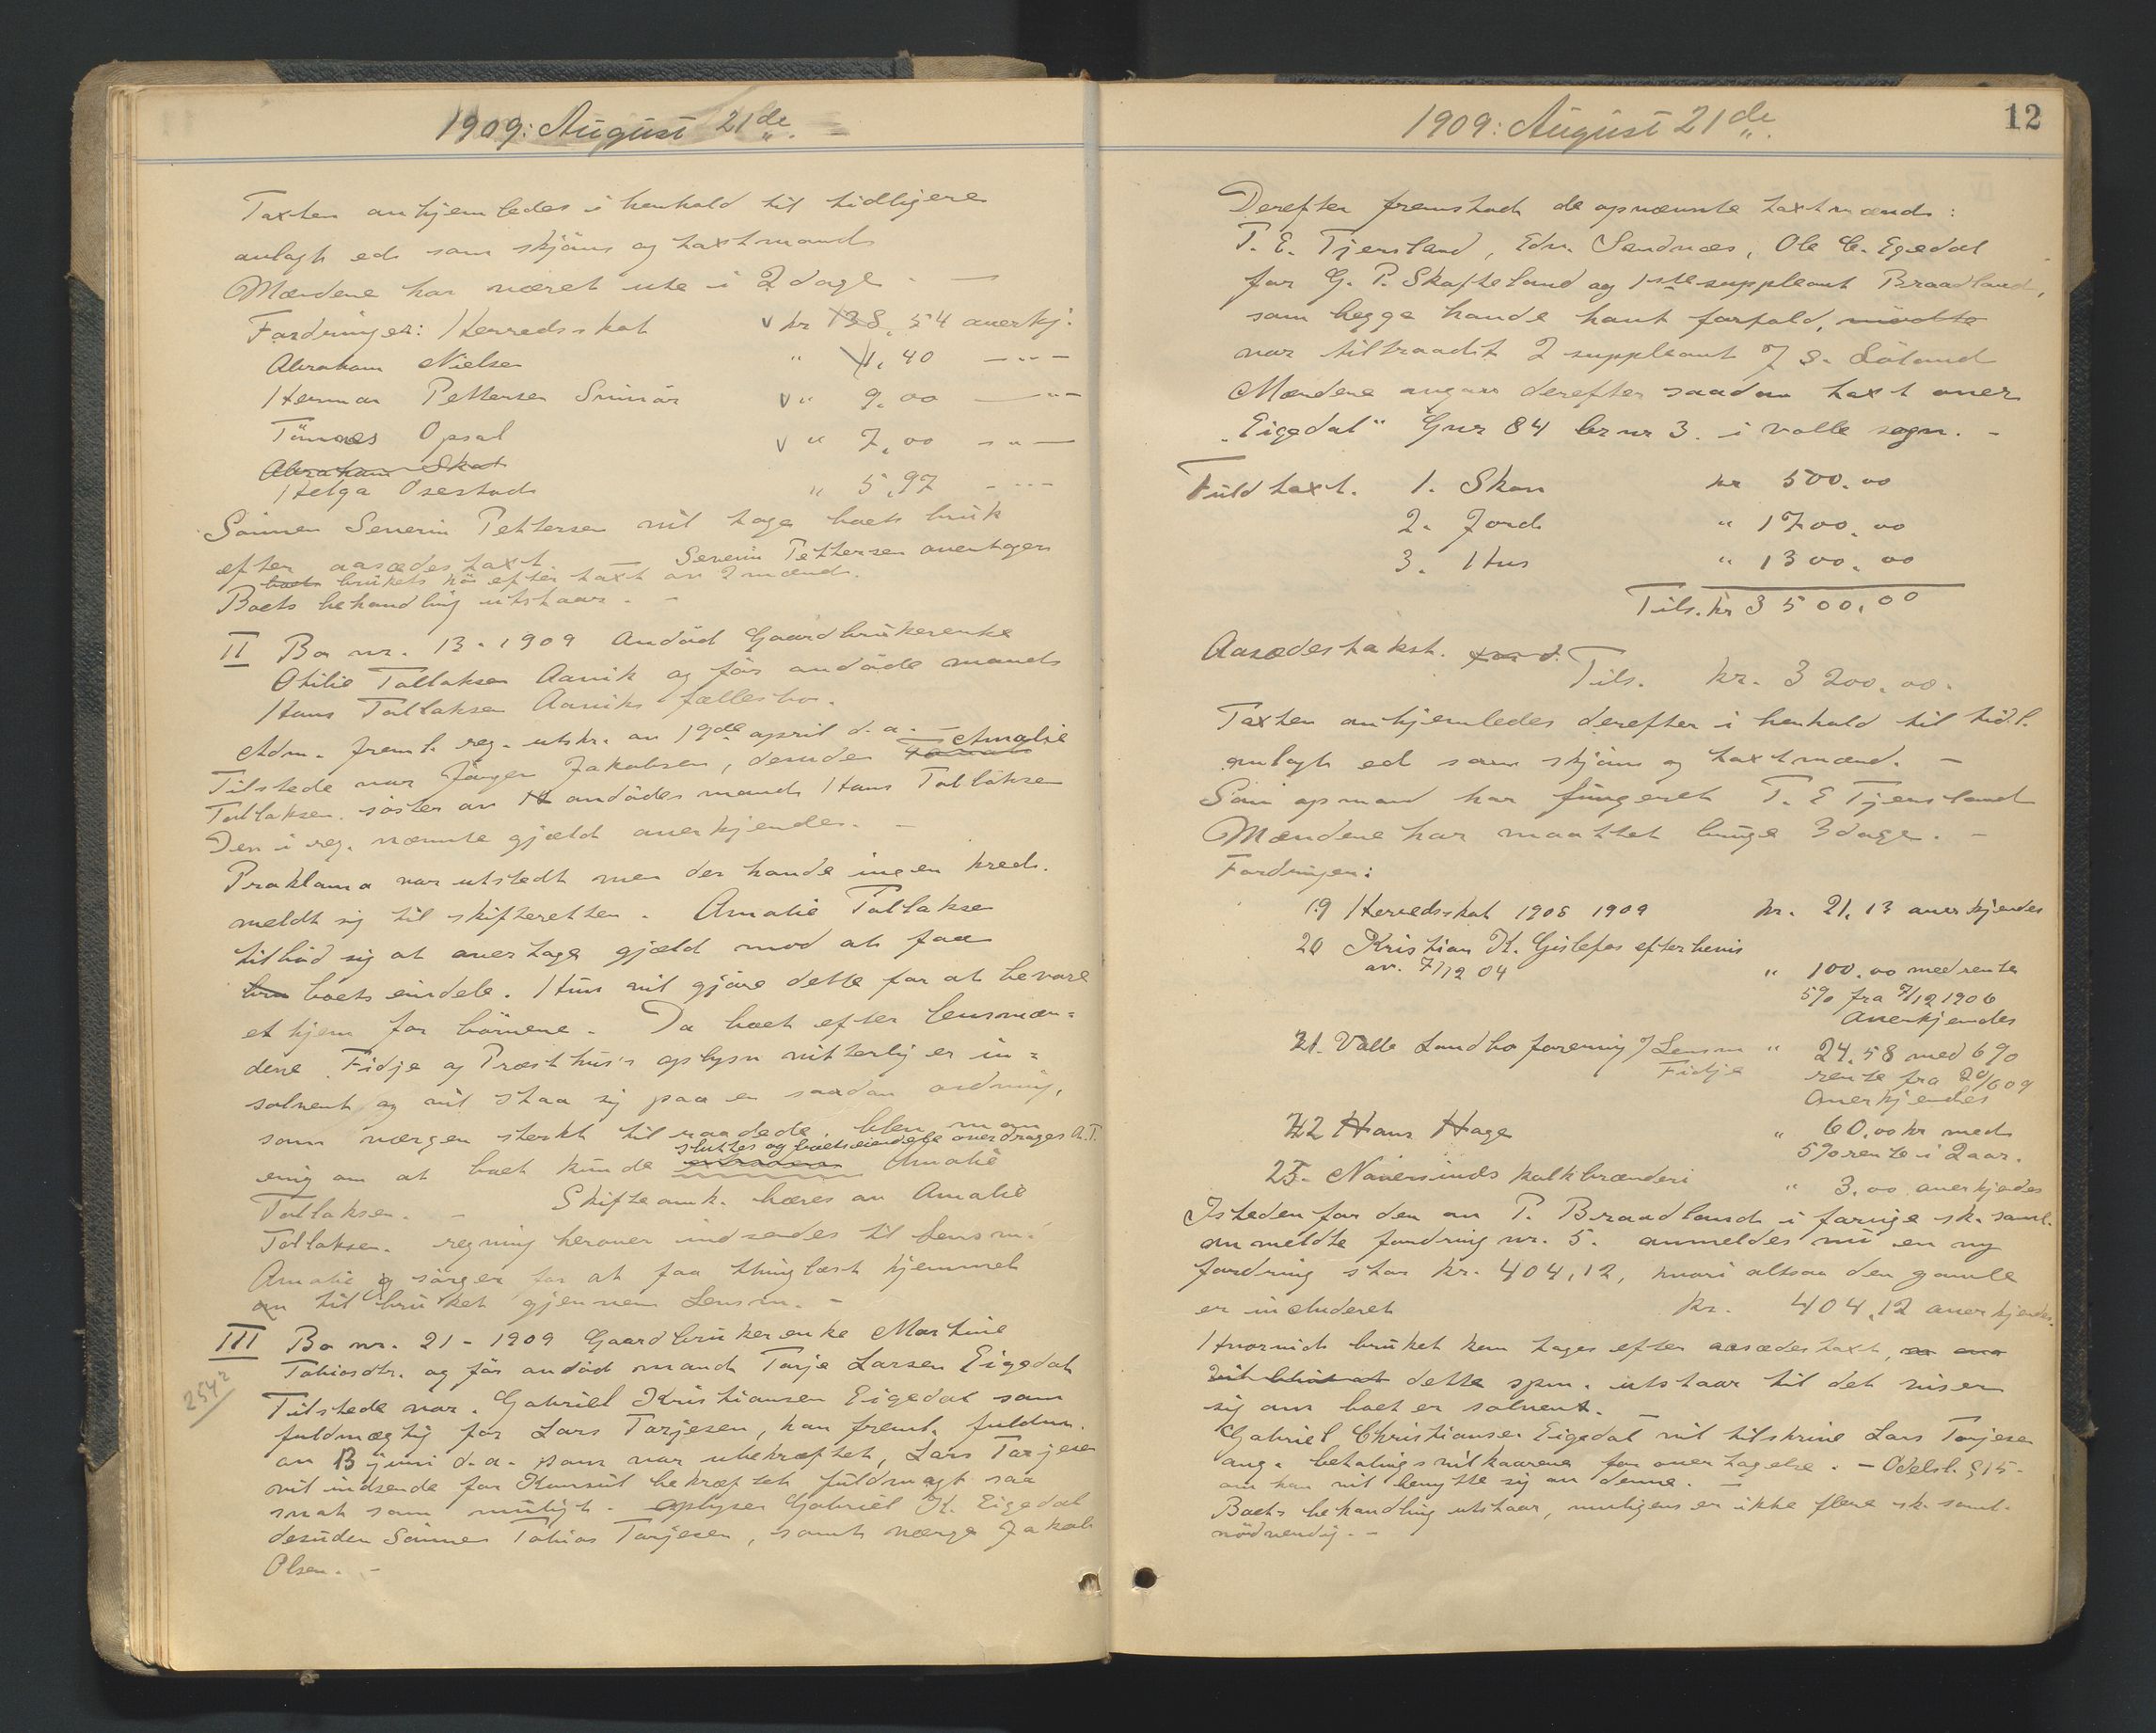 1909: August 21de.
Taxten anhjemledes i henhold til tidligere
avlagt ed som skjöns og taxtmænd
Mændene har været ute i 2 dage. —
Fordringer: Herredsskat v kr 138,54 anerkj.
Abraham Nielsen " 1,40 — " —
Herman Pettersen v " 9,00 — " —
Tönnes Opsal v " 7,00 — " —
Abraham Skat
Helga Osestad " 5,97 — " —
Sönnen Severin Pettersen vil tage boets bruk
efter aasædestaxt. — Severin Pettersen overtager
boets brukets hö efter taxt av 2 mænd.
Boets behandling utstaar. —
II Bo nr. 13 - 1909 Avdöd Gaardbrukerenke
Otilie Tallaksen Aavik og för avdöde mands
Hans Tallaksen Aaviks fællesbo.
Adm. freml. reg. utskr. av 19de april d.a. —
Tilstede var Jörgen Jakobsen, desuden Amalie
Tallaksen, söster av avdödes mand Hans Tallaksen
Den i reg. nævnte gjæld anerkjendes. —
Proklama var utstedt men der havde ingen kred.
meldt sig til skifteretten. Amalie Tallaksen
tilböd sig at overtage gjæld mod at faa
boets eiendele. Hun vil gjöre dette for at bevare
et hjem for börnene. Da boet efter lensmæn=
dene Fidje og Præsthus's oplysn vitterlig er in=
solvent og vil staa sig paa en saadan ordning,
som værgen sterkt tilraadede, blev man
enig om at boet kunde sluttes og boets eiendele overdrages A.T. Amalie
Tallaksen. — Skifteomk. bæres av Amalie
Tallaksen. regning herover indsendes til lensm.
Amalie sörger for at faa thinglæst hjemmel
til bruket gjennem Lensm. —
III Bo nr. 21 - 1909 Gaardbrukerenke Martine
Tobiasdtr. og för avdöd mand Tarje Larsen Eigedal
254²
Tilstede var. Gabriel Kristiansen Eigedal som
fuldmægtig for Lars Tarjesen, han freml. fuldm.
av 13 juni d.a. som var ubekræftet, Lars Tarjesen
vil indsende for Konsul bekræftet fuldmagt saa
snart som muligt. oplyser Gabriel K. Eigedal
desuden Sönnen Tobias Tarjesen, samt værge Jakob
Olsen. —
1909: August 21de.
12
Derefter fremstod de opnævnte taxtmænd:
T. E. Tjersland, Edv. Sandnæs, Ole C. Egedal
for G. P. Skafteland og 1ste suppleant Braadland,
som begge havde havt forfald, mödte
var tiltraadt 2 suppleant J S. Löland
Mændene avgav derefter saadan taxt over
"Eigedal" Gnr 84 brnr 3. i Valle sogn. —
Fuld taxt. 1. Skov kr 500.00
2. Jord " 1700.00
3. Hus " 1300.00
Tils. kr 3500.00
Aasædestakst.
Tils. kr. 3200.00.
Taxten anhjemledes derefter i henhold til tidl.
avlagt ed som skjöns og taxtmænd. —
Som opmand har fungeret T. E Tjersland
Mændene har maattet bruge 3 dage. —
Fordringer:
19 Herredsskat 1908 1909 kr. 21,13 anerkjendes
20 Kristian K. Gislefos efter bevis
av. 7/12 04 " 100.00 med rente
5% fra 7/12 1906
Anerkjendes
21. Valle Landboforening v/ Lensm Fidje " 24.58 med 6%
rente fra 20/6 09
Anerkjendes
22 Hans Hage " 60,00 kr med
5% rente i 2 aar.
25. Naversunds kalkbrænderi " 3.00 anerkjendes
Isteden for den av P. Braadland i forrige sk. saml.
anmeldte fordring nr. 5. anmeldes nu en ny
fordring stor kr. 404,12, hvori altsaa den gamle
er includeret kr. 404,12 anerkjendes.
Hvorvidt bruket kan tages efter aasædestaxt,
dette spm. utstaar til det viser
sig om boet er solvent. —
Gabriel Christiansen Eigedal vil tilskrive Lars Tarjesen
ang. betalingsvilkaarene for overtagelse. — Odelsl. §15 -
om han vil benytte sig av denne. —
Boets behandling utstaar, muligens er ikke flere sk. saml.
nödvendig. —